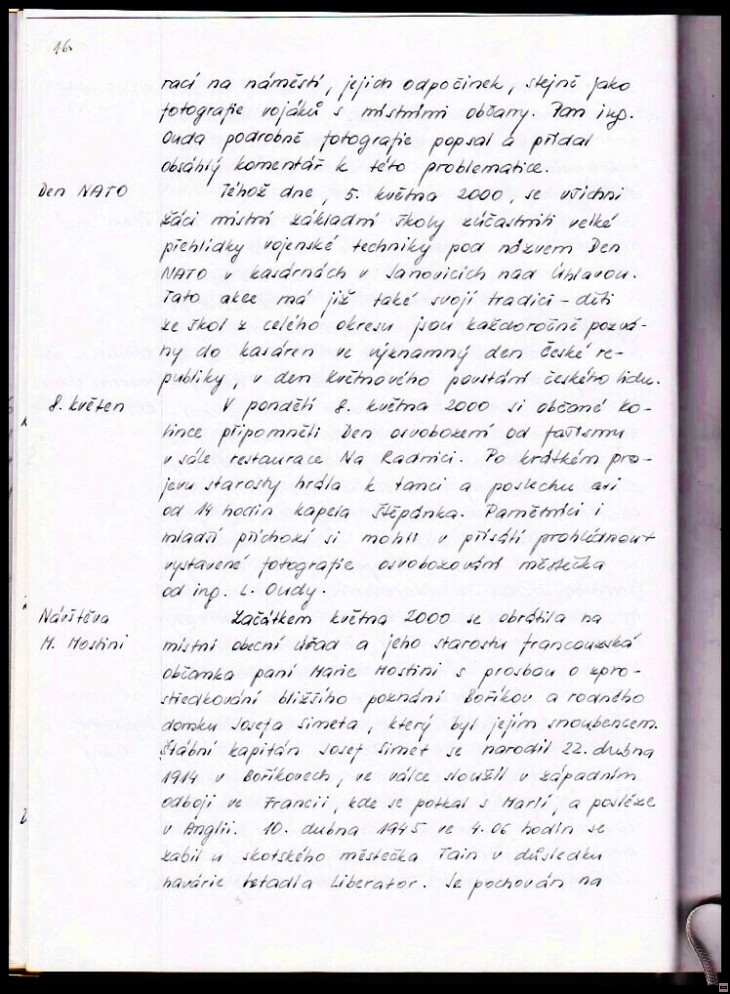 16
rací na náměstí, jejich odpočinek, stejně jako
fotografie vojáků s místními občany. Pan ing.
Ouda podrobně fotografie popsal a přidal
obsáhlý komentář k této problematice.
Den NATO
Téhož dne, 5. května 2000, se všichni
žáci místní základní školy zúčastnili velké
přehlídky vojenské techniky pod názvem Den
NATO v kasárnách v Janovicích nad Úhlavou.
Tato akce má již také svoji tradici - děti
ze škol z celého okresu jsou každoročně pozvá-
ny do kasáren ve významný den České re-
publiky, v den květnového povstání českého lidu.
8. květen
V pondělí 8. května 2000 si občané Ko-
lince připomněli Den osvobození od fašismu
v sále restaurace Na Radnici. Po krátkém pro-
jevu starosty hrála k tanci a poslechu asi
od 14 hodin kapela Štěpánka. Pamětníci i
mladší příchozí si mohli v přísálí prohlédnout
vystavené fotografie osvobozování městečka
od ing. L. Oudy.
Návštěva
M. Mostini
Začátkem května 2000 se obrátila na
místní obecní úřad a jeho starostu francouzská
občanka paní Marie Mostini s prosbou o zpro-
středkování bližšího poznání Boříkov a rodného
domku Josefa Šimeta, který byl jejím snoubencem.
Štábní kapitán Josef Šimet se narodil 22. dubna
1914 v Boříkovech, ve válce sloužil v západním
odboji ve Francii, kde se potkal s Marií, a posléze
v Anglii. 10. dubna 1945 ve 4.06 hodin se
zabil u skotského městečka Tain v důsledku
havárie letadla Liberator. Je pochován na